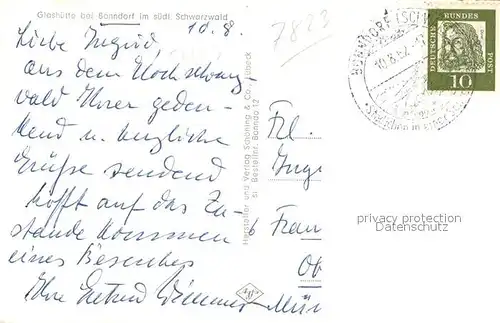 Glashütte bei Bonndorf im südl. Schwarzwald
10.8.
7823
Liebe Ingrid,
aus dem Hochschwarz-
wald Ihrer geden-
kend u. herzliche
Grüße sendend
hofft auf das Zu-
standekommen
eines Besuches
Ihre
Hersteller und Verlag Schöning & Co., Lübeck
Bestellnr. Bonndo 12
BONNDORF (SCHW
10.8.62
DEUTSCHE BUNDES POST
10
Frl.
Inge
6 Fran
Ob
Mün
privacy protection
Datenschutz